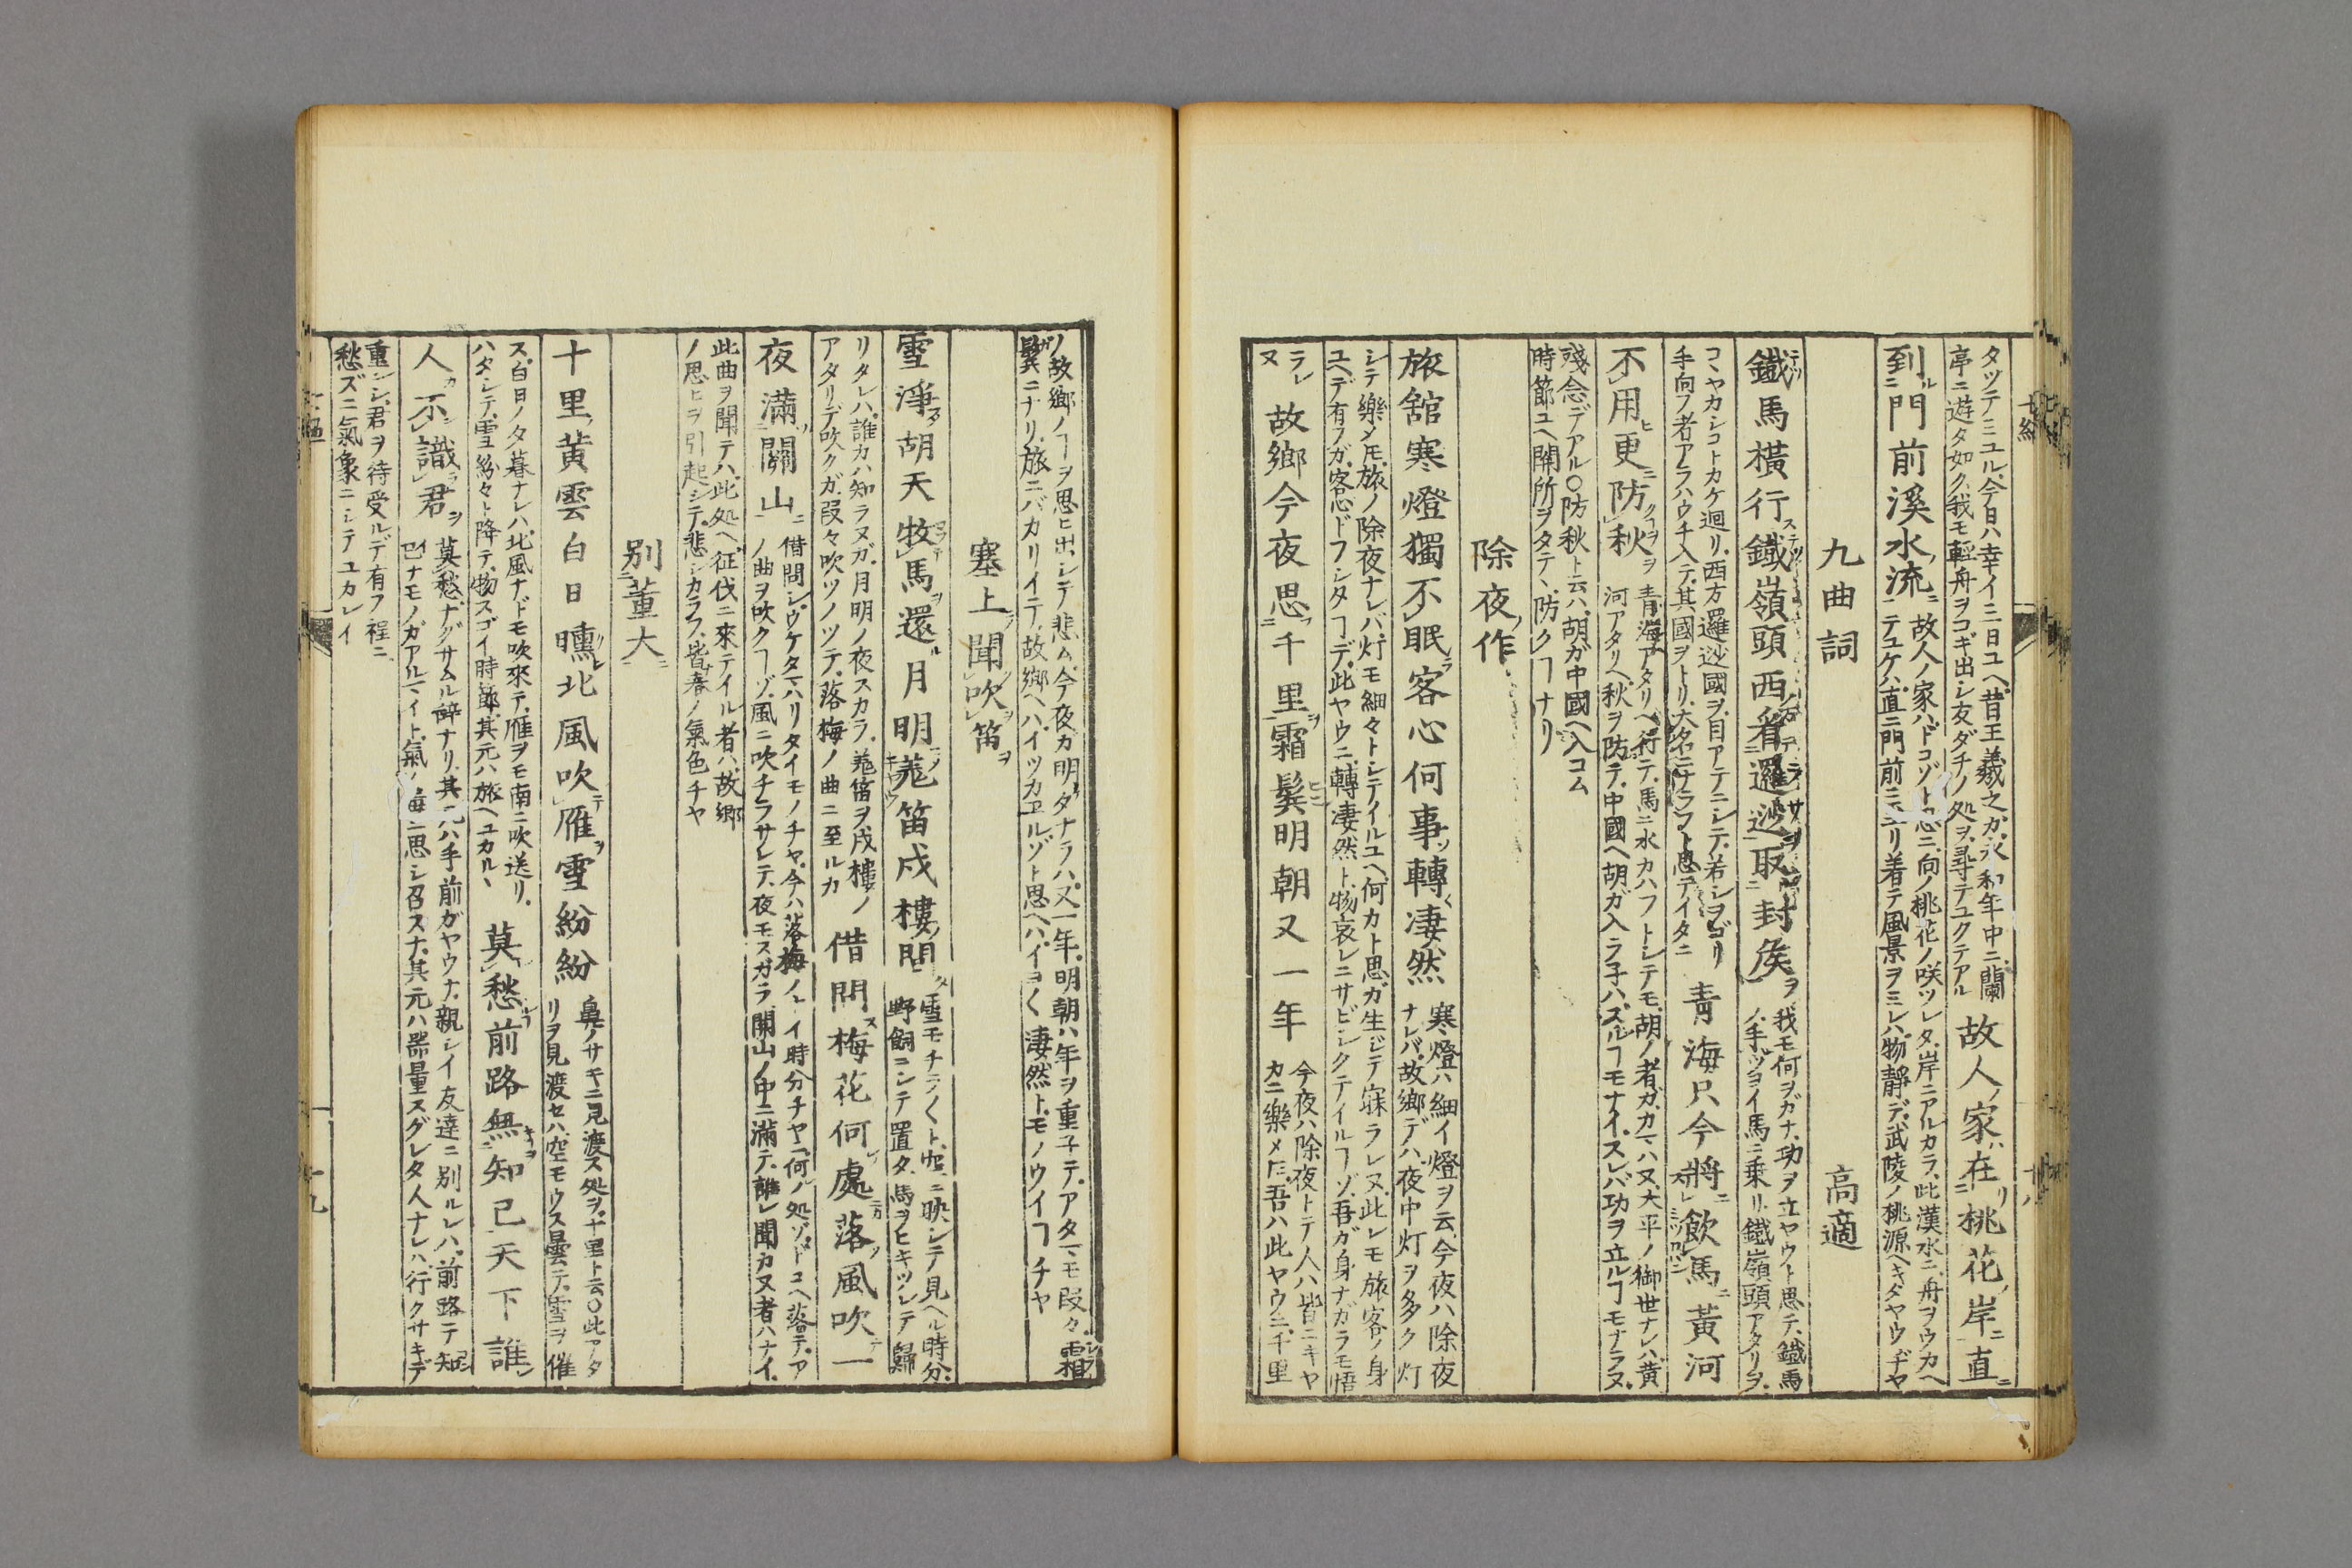 タヅテミユル、今日ハ幸イ三日ユヘ、昔王羲之ガ、永和年中ニ、蘭
亭ニ遊タ如ク、我モ輕舟ヲコギ出シ友ダチノ処ヲ、尋テユクテアル
故人家在桃花岸直
到門前溪水流
故人ノ家ハ、ドコゾト思ニ、向ノ桃花ノ咲ツレタ、岸ニアルカラ、此漢水ニ、舟ヲウカヘ
テユケハ、直ニ門前ニ
着テ風景ヲミレハ、物靜デ、武陵ノ桃源ヘキタヤウヂヤ
九曲詞
高適
鐵馬橫行鐵嶺頭西看邏逤取封矦
我モ何ヲガナ、功ヲ立ヤウト思テ、鐵馬
ノ、手ヅヨイ馬ニ乗リ、鐵嶺頭アタリヲ、
コヽヤカシコトカケ廻リ、西方邏逤國ヲ、目アテニシテ、若シ
手向フ者アラハウチ入テ、其國ヲトリ、大名ニナラフト思テイタニ
青海只今將飲馬黃河
不用更防秋
青海アタリヘ行テ、馬ニ水カハフトシテモ、胡ノ者ガ、カマハヌ、大平ノ御世ナレハ、黄
河アタリヘ、秋ヲ防テ、中國ヘ胡ガ入ラ子ハ、ズルヿモナイ、スレバ功ヲ立ルヿモナラヌ、
殘念、デアル○防秋ト云ハ、胡ガ中國ヘ入コム
時節ユヘ關所ヲタテ、防クヿナリ
除夜作
旅舘寒燈獨不眠客心何事轉凄然
寒燈ハ細イ燈ヲ云、今夜ハ除夜
ナレバ、故郷デハ、夜中灯ヲ多ク灯
シテ樂メモ、旅ノ除夜ナレバ、灯モ細々トシテイルユヘ、何カト思ガ生ジテ寐ラレヌ、此レモ旅客ノ身
ユヘデ有フガ、客心ドフシタヿデ、此ヤウニ、轉凄然ト、物哀レニサビシクテイルヿゾ、吾ガ身ナガラモ悟
ラレ
ヌ
故郷今夜思千里霜鬂明朝又一年
今夜ハ除夜トテ人ハ皆ニキヤ
カニ樂メ𪜈、吾ハ此ヤウニ、千里
ノ故郷ノヿヲ思ヒ出シテ悲ム、今夜カ明タナラハ、又一年、明朝ハ年ヲ重子テ、アタマモ段々霜
鬂ニナリ、旅ニバカリイテ、故郷ヘハ、イツカヱルゾト思ヘハ、イヨ〱凄然ト、モノウイヿチヤ
塞上聞吹笛
雪淨胡天牧馬還月明羗笛戍樓間
雪モチラ〱ト、空ニ映シテ見ヘル時分、
野飼ニシテ置タ、馬ヲヒキツレテ歸
リタレハ、誰カハ知ラヌガ、月明ノ夜スカラ、羗笛ヲ戍樓ノ
アタリデ吹クガ、段々吹ツノツテ、落梅ノ曲ニ至ルカ
借問梅花何處落風吹一
夜滿關山
借問シ、ウケタマハリタイモノチヤ、今ハ落梅ノ
イ時分チヤニ、何ノ処ゾ、ドコヘ落テ、ア
ノ曲ヲ吹クヿゾ、風ニ吹チラサレテ、夜モスガラ、關山ノ中ニ滿テ、誰レ聞カヌ者ハナイ、
此曲ヲ聞テハ、此処ヘ、征伐ニ來テイル者ハ、故郷
ノ思ヒヲ引起シテ、悲シカラフ、皆春ノ氣色チヤ
別董大
十里黃雲白日曛北風吹雁雪紛紛
鼻ノサキニ見渡ス処ヲ、十里ト云○此アタ
リヲ見渡セハ、空モウス曇テ、雪ヲ催
ス、白日ノ夕暮ナレハ、北風ナドモ吹來テ、雁ヲモ南ニ吹送リ、
ハタシテ、雪紛々ト降テ、物スゴイ時節、其元ハ旅ヘユカルヽ
莫愁前路無知己天下誰
人不識君
莫愁ナグサムル辭ナリ、其元ハ手前ガヤウナ、親シイ友達ニ別ルレハ、前路テ知
巳ナモノガアルマイト、氣ノ毒ニ思シ召スナ、其元ハ器量スグレタ人ナレハ、行クサキデ
重ンシ、君ヲ待受ルデ有フ程ニ
愁ズニ氣象ニシテユカレイ